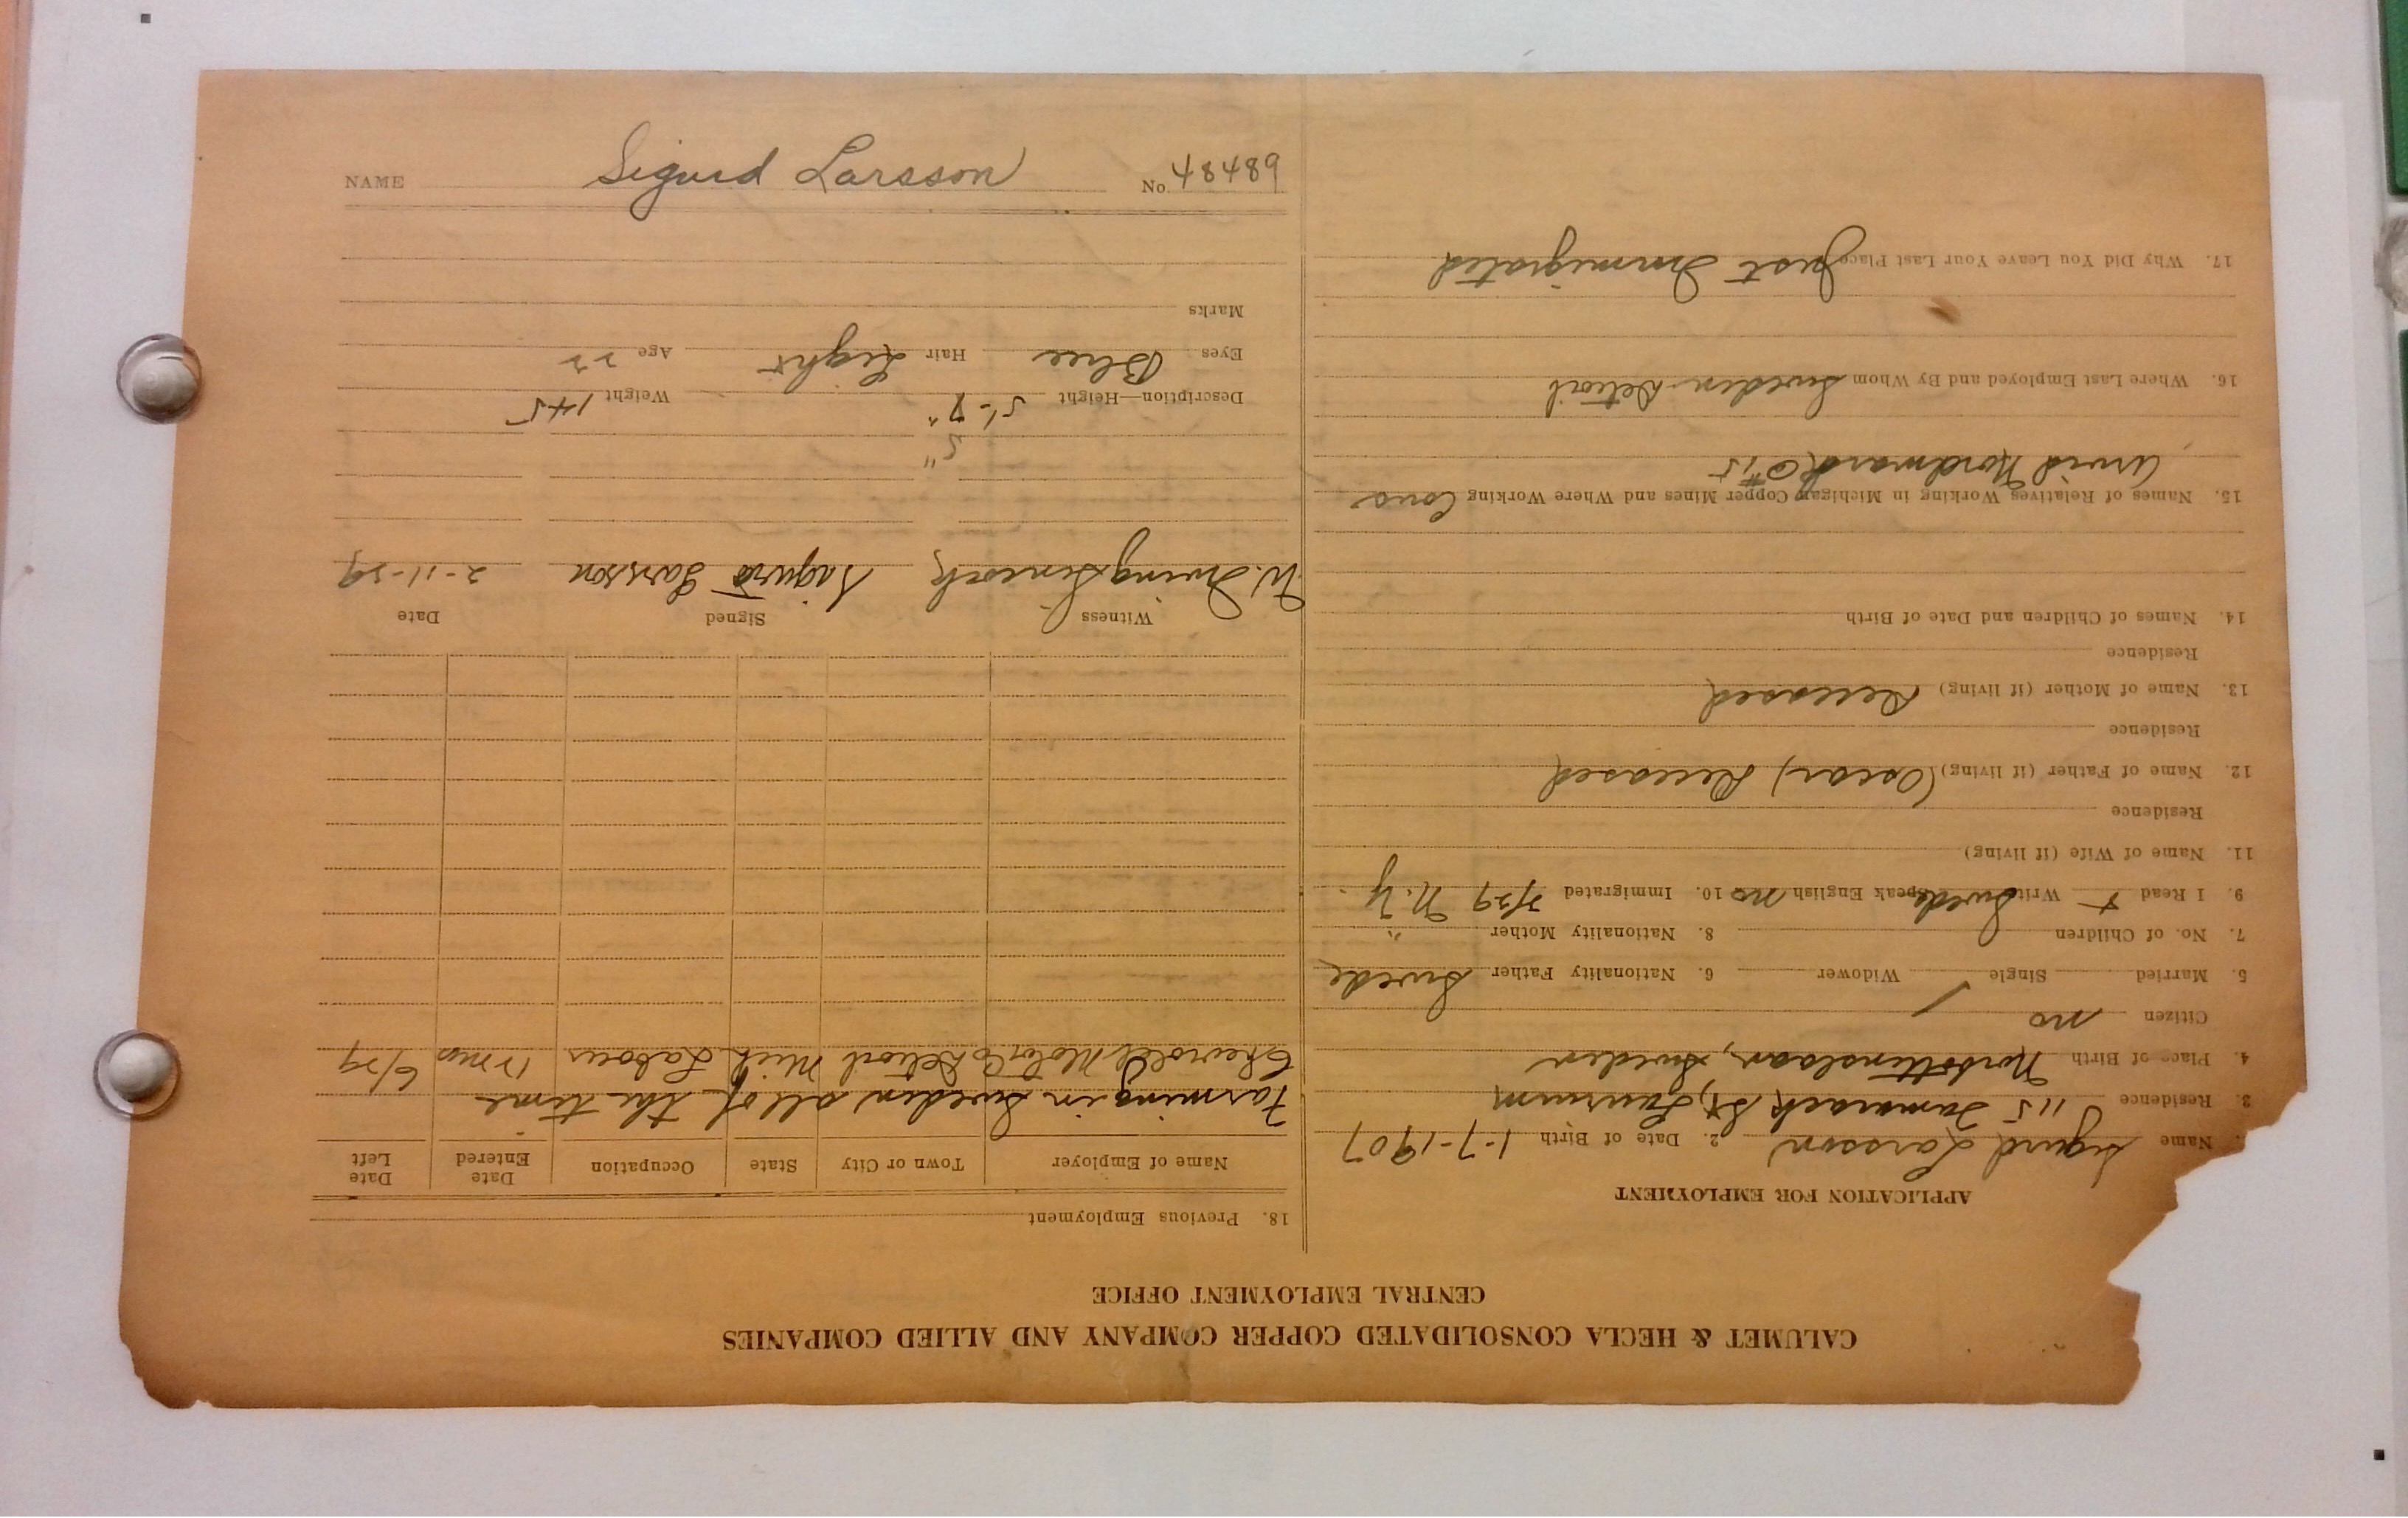 CALUMET & HECLA CONSOLIDATED COPPER COMPANY AND ALLIED COMPANIES
CENTRAL EMPLOYMENT OFFICE
APPLICATION FOR EMPLOYMENT
Name Sigurd Larsson 2. Date of Birth 1-7-1907
3. Residence 115 Tamarack St, Laurium
4. Place of Birth Norbottenslaan, Sweden
Citizen no
5. Married Single / Widower 6. Nationality Father Swede
7. No. of Children 8. Nationality Mother "
9. I Read + Write Swede Speak English no 10. Immigrated N.Y.
11. Name of Wife (if living)
Residence
12. Name of Father (if living) (Oscar) Deceased
Residence
13. Name of Mother (if living) Deceased
Residence
14. Names of Children and Date of Birth
15. Names of Relatives Working in Michigan Copper Mines and Where Working Cons
Arvid Nordmark @ #15
16. Where Last Employed and By Whom Sweden Detroit
17. Why Did You Leave Your Last Place Just Immigrated
18. Previous Employment
Name of Employer Town or City State Occupation Date Entered Date Left
Farming in Sweden all of the time
Chevrolet Motor Co Detroit Mich Labour mos 6/29
Witness Signed Date
W. Irving Sigurd Larsson 2-11-29
5"
Description—Height 5'-7" Weight 145
Eyes Blue Hair Light Age 22
Marks
NAME Sigurd Larsson No. 48489